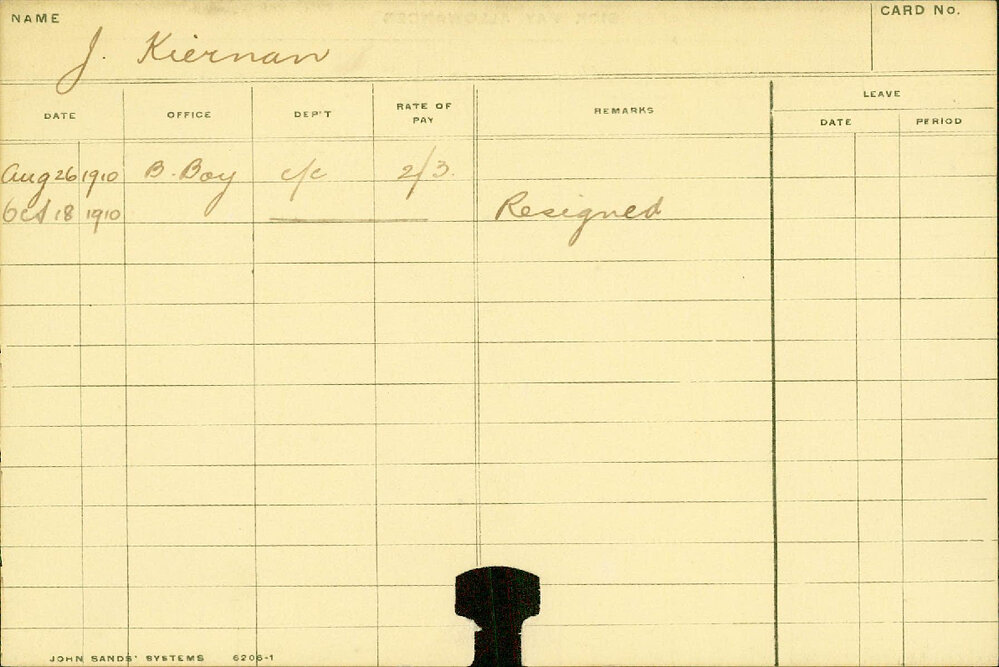 NAME J. Kiernan CARD No.
DATE OFFICE DEP'T RATE OF PAY REMARKS LEAVE
DATE PERIOD
Aug 26 1910 B. Boy c/c 2/3.
Oct 18 1910 Resigned
JOHN SANDS' SYSTEMS 6206-1